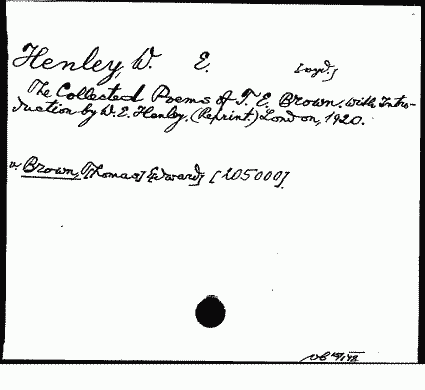 Henley, W. E.
The Collected Poems of T. E. Brown. with Intro-
duction by W. E. Henley. (Reprint) London, 1920.
v. Brown, T[homas] E[dward] [105000].